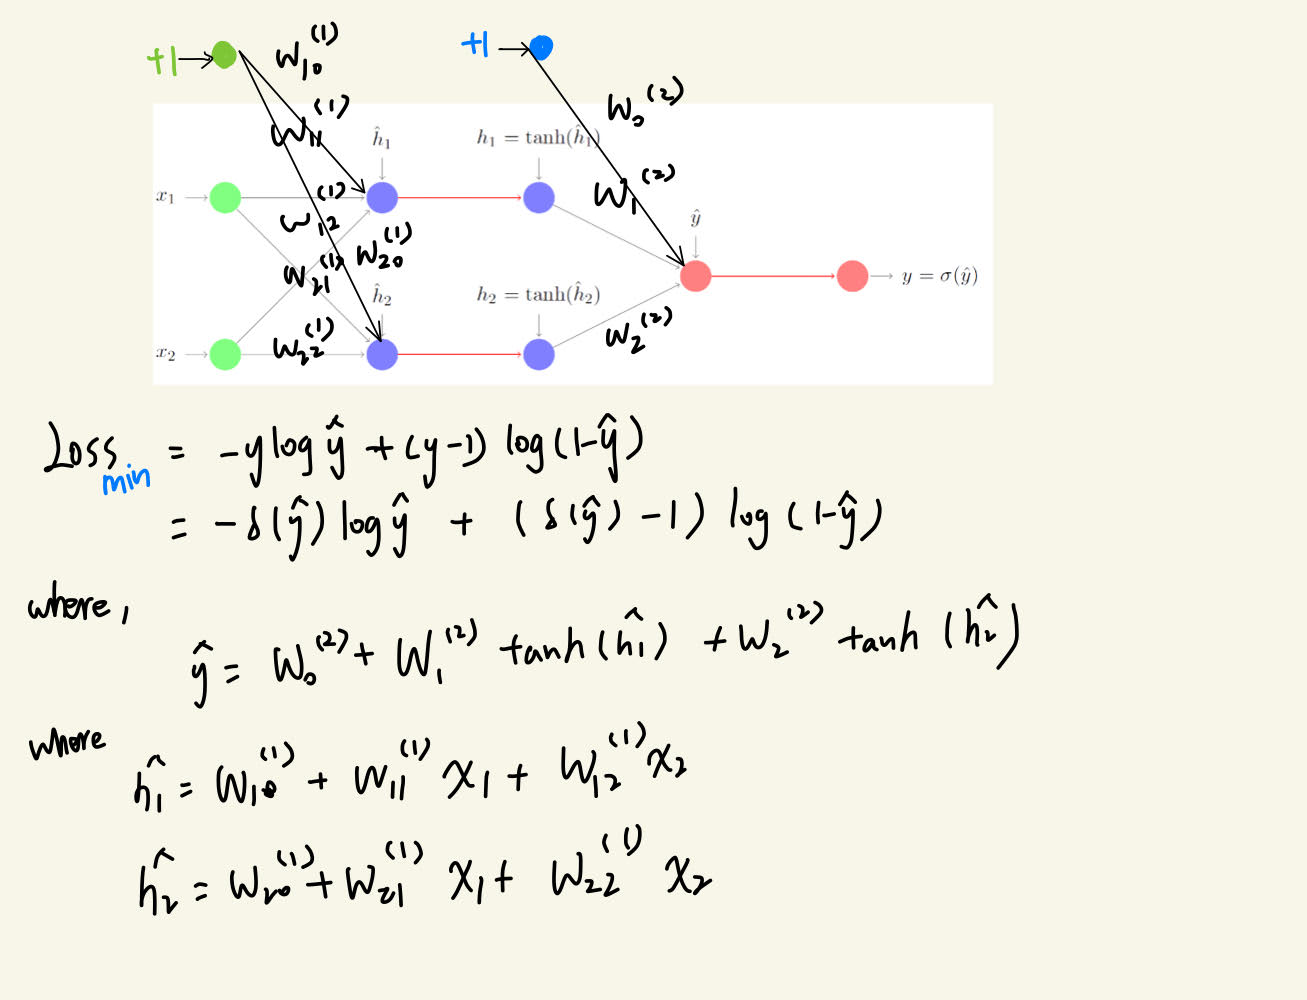 +1 W₁₀⁽¹⁾ +1
W₀⁽²⁾
W₁₁⁽¹⁾ ĥ₁ h₁ = tanh(ĥ₁)
x₁ W₁⁽²⁾
W₁₂⁽¹⁾ ŷ
W₂₁⁽¹⁾ W₂₀⁽¹⁾ y = σ(ŷ)
ĥ₂ h₂ = tanh(ĥ₂)
x₂ W₂₂⁽¹⁾ W₂⁽²⁾
Loss min = -y log ŷ + (y-1) log(1-ŷ)
= -δ(ŷ) log ŷ + (δ(ŷ) -1) log(1-ŷ)
where,
ŷ = W₀⁽²⁾ + W₁⁽²⁾ tanh(ĥ₁) + W₂⁽²⁾ tanh(ĥ₂)
where
ĥ₁ = W₁₀⁽¹⁾ + W₁₁⁽¹⁾ x₁ + W₁₂⁽¹⁾ x₂
ĥ₂ = W₂₀⁽¹⁾ + W₂₁⁽¹⁾ x₁ + W₂₂⁽¹⁾ x₂